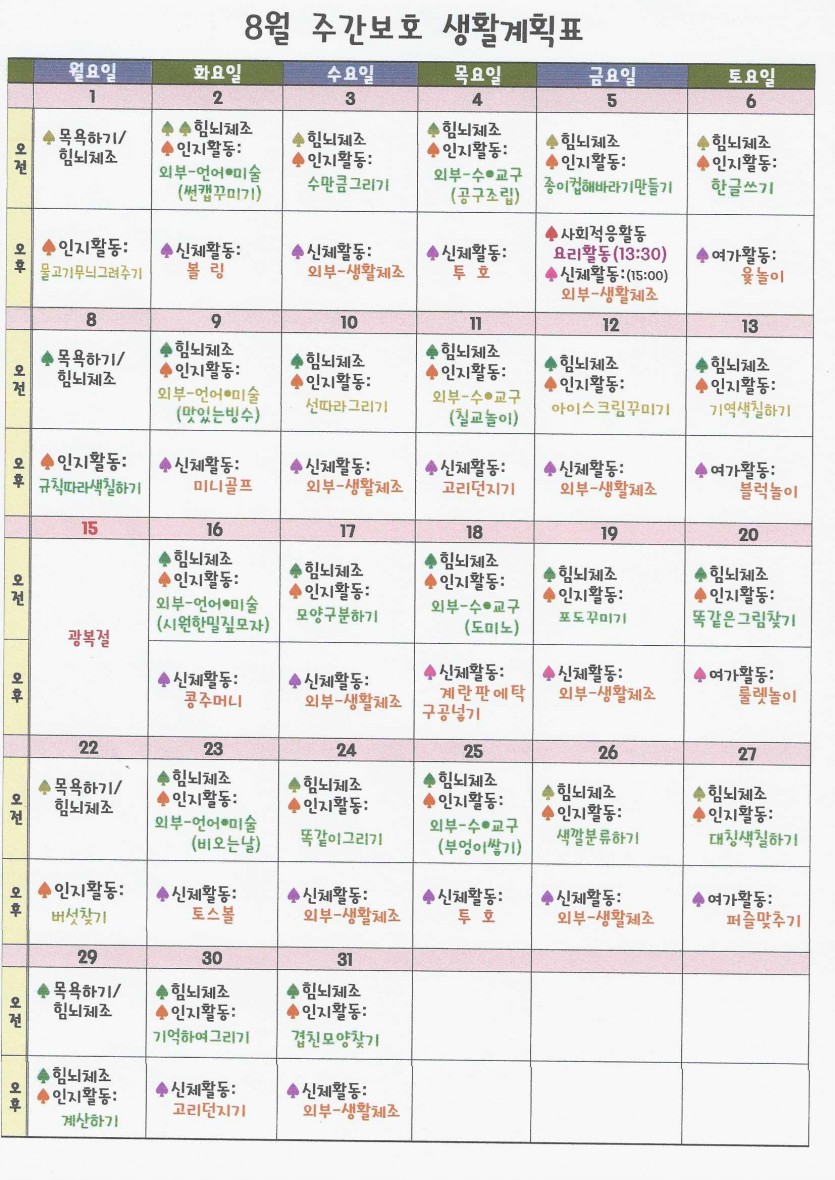 8월 주간보호 생활계획표
월요일 화요일 수요일 목요일 금요일 토요일
1 2 3 4 5 6
오전
♠목욕하기/
힘뇌체조
♠♠힘뇌체조
♠인지활동:
외부-언어•미술
(썬캡꾸미기)
♠힘뇌체조
♠인지활동:
수만큼그리기
♠힘뇌체조
♠인지활동:
외부-수•교구
(공구조립)
♠힘뇌체조
♠인지활동:
종이컵해바라기만들기
♠힘뇌체조
♠인지활동:
한글쓰기
오후
♠인지활동:
물고기무늬그려주기
♠신체활동:
볼 링
♠신체활동:
외부-생활체조
♠신체활동:
투 호
♠사회적응활동
요리활동(13:30)
♠신체활동:(15:00)
외부-생활체조
♠여가활동:
윷놀이
8 9 10 11 12 13
오전
♠목욕하기/
힘뇌체조
♠힘뇌체조
♠인지활동:
외부-언어•미술
(맛있는빙수)
♠힘뇌체조
♠인지활동:
선따라그리기
♠힘뇌체조
♠인지활동:
외부-수•교구
(칠교놀이)
♠힘뇌체조
♠인지활동:
아이스크림꾸미기
♠힘뇌체조
♠인지활동:
기역색칠하기
오후
♠인지활동:
규칙따라색칠하기
♠신체활동:
미니골프
♠신체활동:
외부-생활체조
♠신체활동:
고리던지기
♠신체활동:
외부-생활체조
♠여가활동:
블럭놀이
15 16 17 18 19 20
광복절
오전
♠힘뇌체조
♠인지활동:
외부-언어•미술
(시원한밀짚모자)
♠힘뇌체조
♠인지활동:
모양구분하기
♠힘뇌체조
♠인지활동:
외부-수•교구
(도미노)
♠힘뇌체조
♠인지활동:
포도꾸미기
♠힘뇌체조
♠인지활동:
똑같은그림찾기
오후
♠신체활동:
콩주머니
♠신체활동:
외부-생활체조
♠신체활동:
계란판에탁
구공넣기
♠신체활동:
외부-생활체조
♠여가활동:
룰렛놀이
22 23 24 25 26 27
오전
♠목욕하기/
힘뇌체조
♠힘뇌체조
♠인지활동:
외부-언어•미술
(비오는날)
♠힘뇌체조
♠인지활동:
똑같이그리기
♠힘뇌체조
♠인지활동:
외부-수•교구
(부엉이쌓기)
♠힘뇌체조
♠인지활동:
색깔분류하기
♠힘뇌체조
♠인지활동:
대칭색칠하기
오후
♠인지활동:
버섯찾기
♠신체활동:
토스볼
♠신체활동:
외부-생활체조
♠신체활동:
투 호
♠신체활동:
외부-생활체조
♠여가활동:
퍼즐맞추기
29 30 31
오전
♠목욕하기/
힘뇌체조
♠힘뇌체조
♠인지활동:
기억하여그리기
♠힘뇌체조
♠인지활동:
겹친모양찾기
오후
♠힘뇌체조
♠인지활동:
계산하기
♠신체활동:
고리던지기
♠신체활동:
외부-생활체조